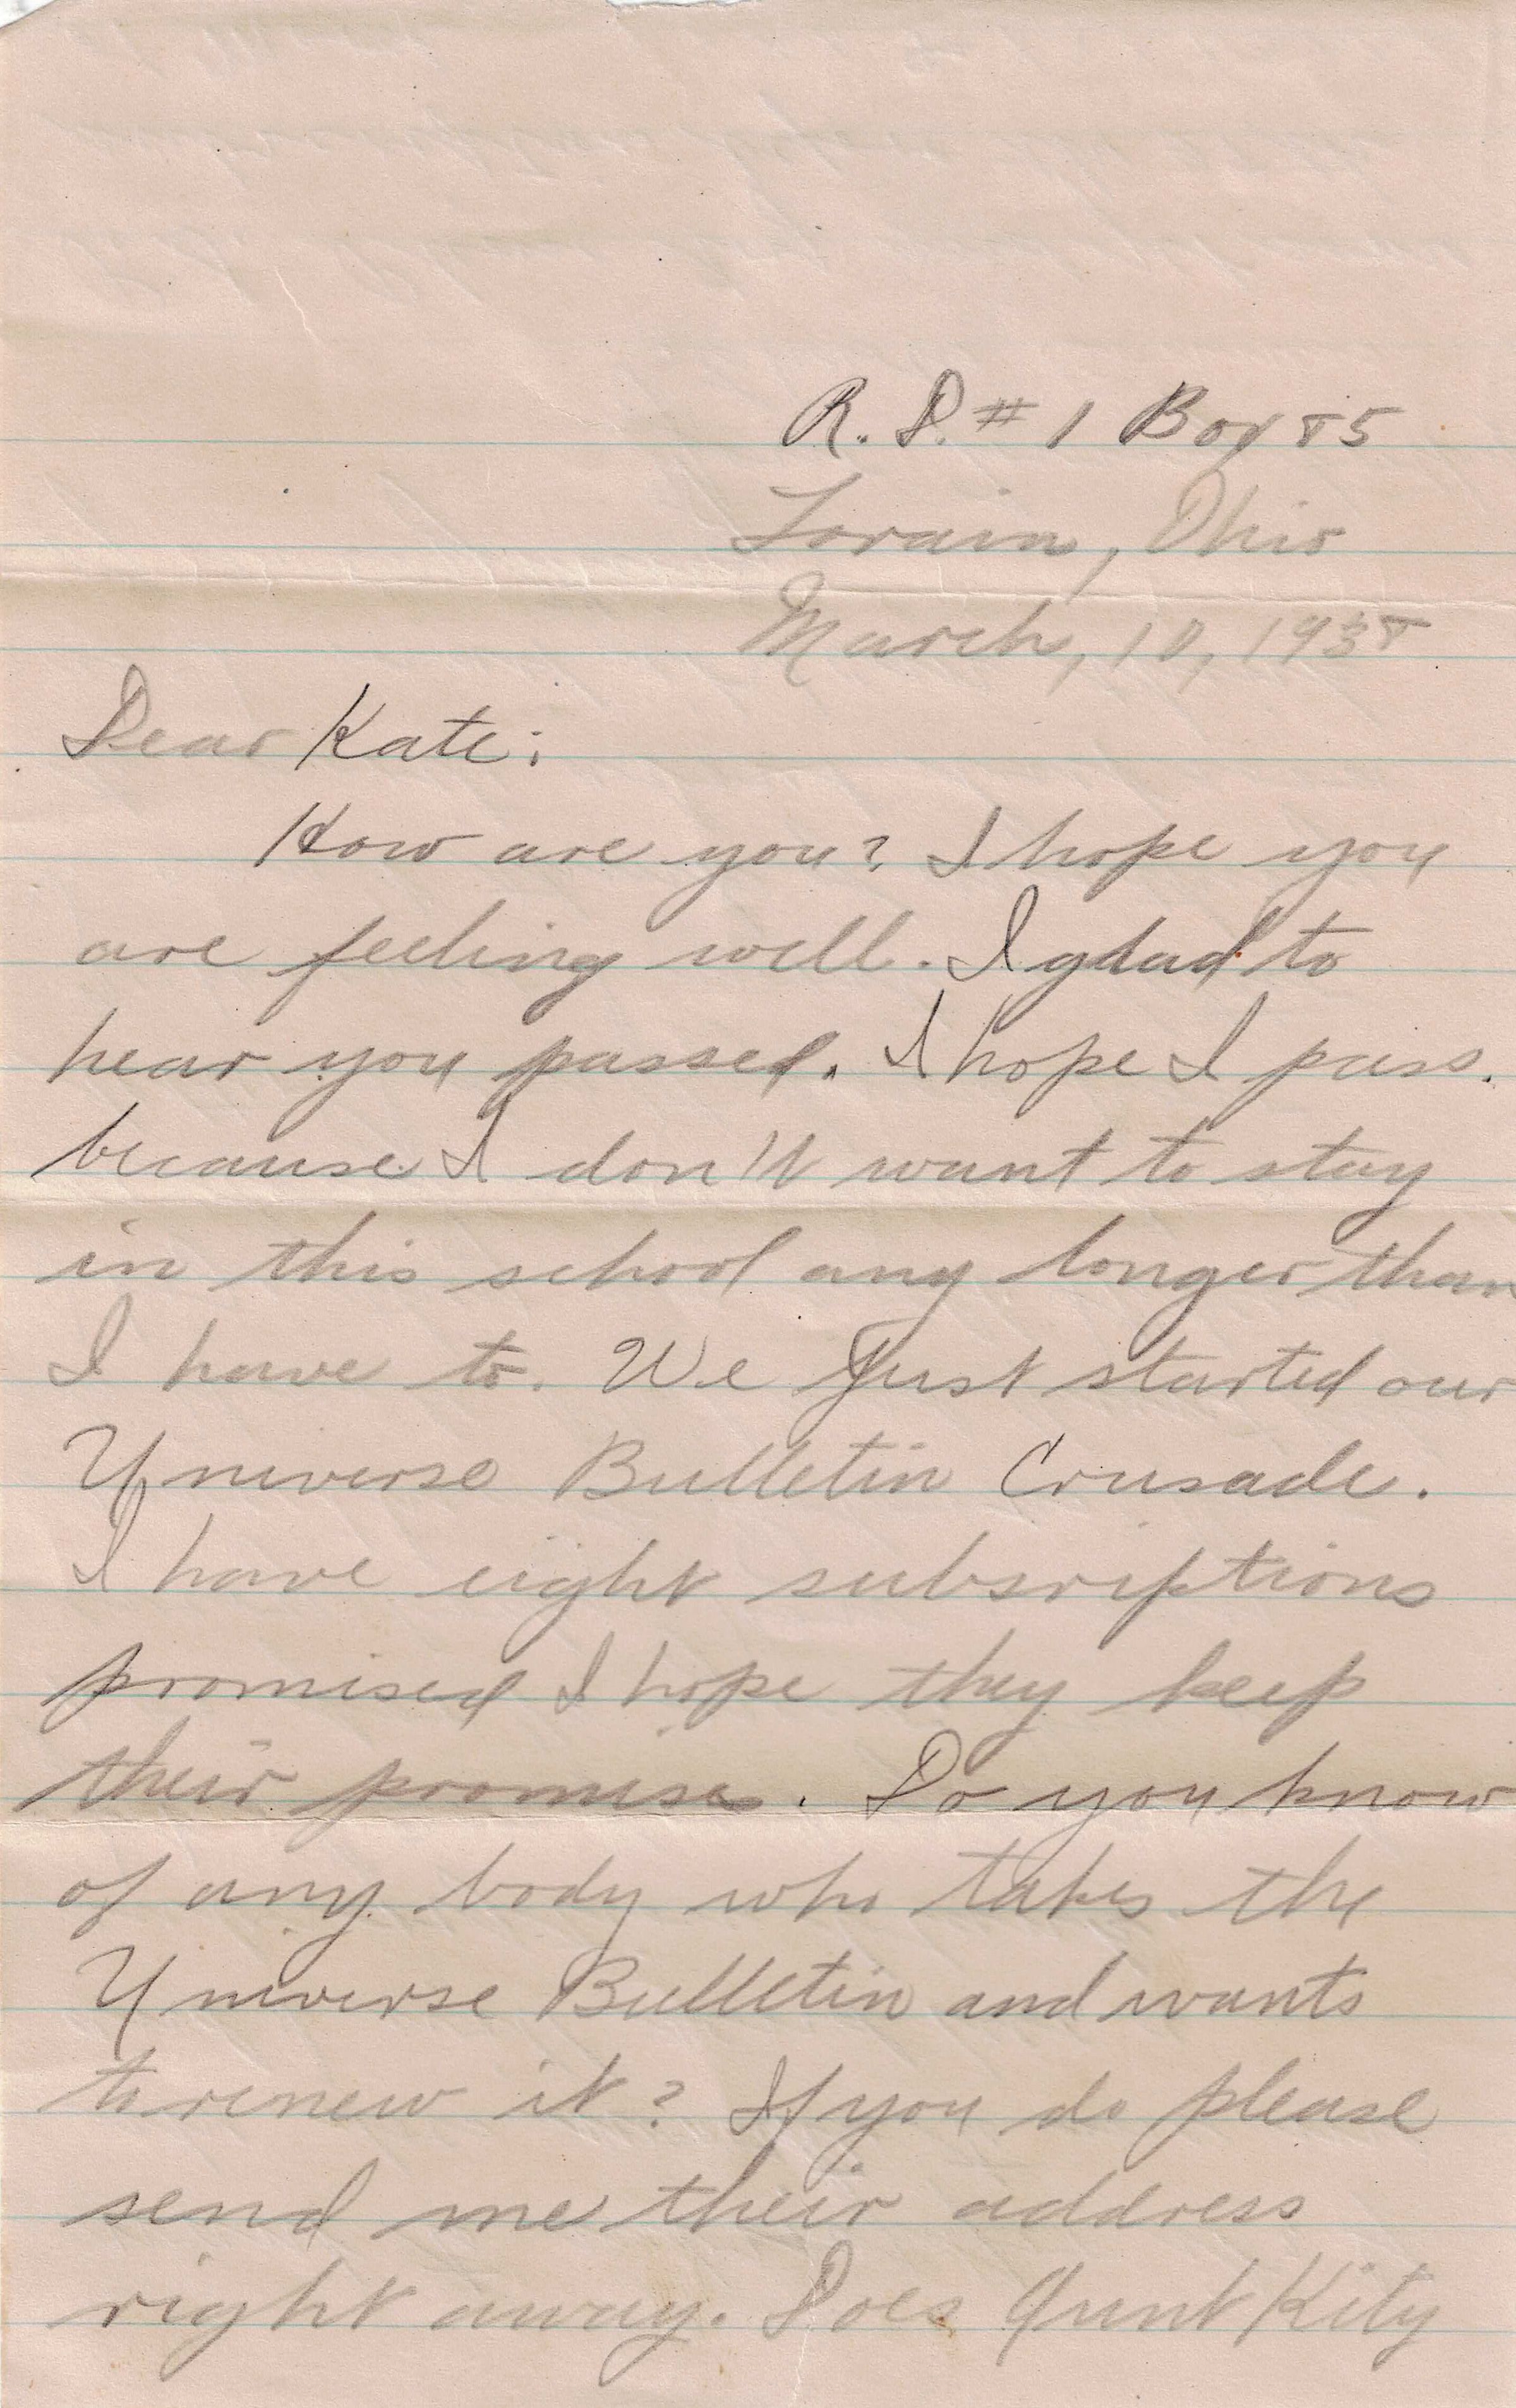 R. D. # 1 Box 85
Lorain, Ohio
March, 10, 1938
Dear Kate:
How are you? I hope you
are feeling well. I glad to
hear you passed. I hope I pass.
because I don't want to stay
in this school any longer than
I have to. We Just started our
Universe Bulletin Crusade.
I have eight subsriptions
promised I hope they keep
their promise. Do you know
of any body who takes the
Universe Bulletin and wants
to renew it? If you do please
send me their address
right away. Does Aunt Kity